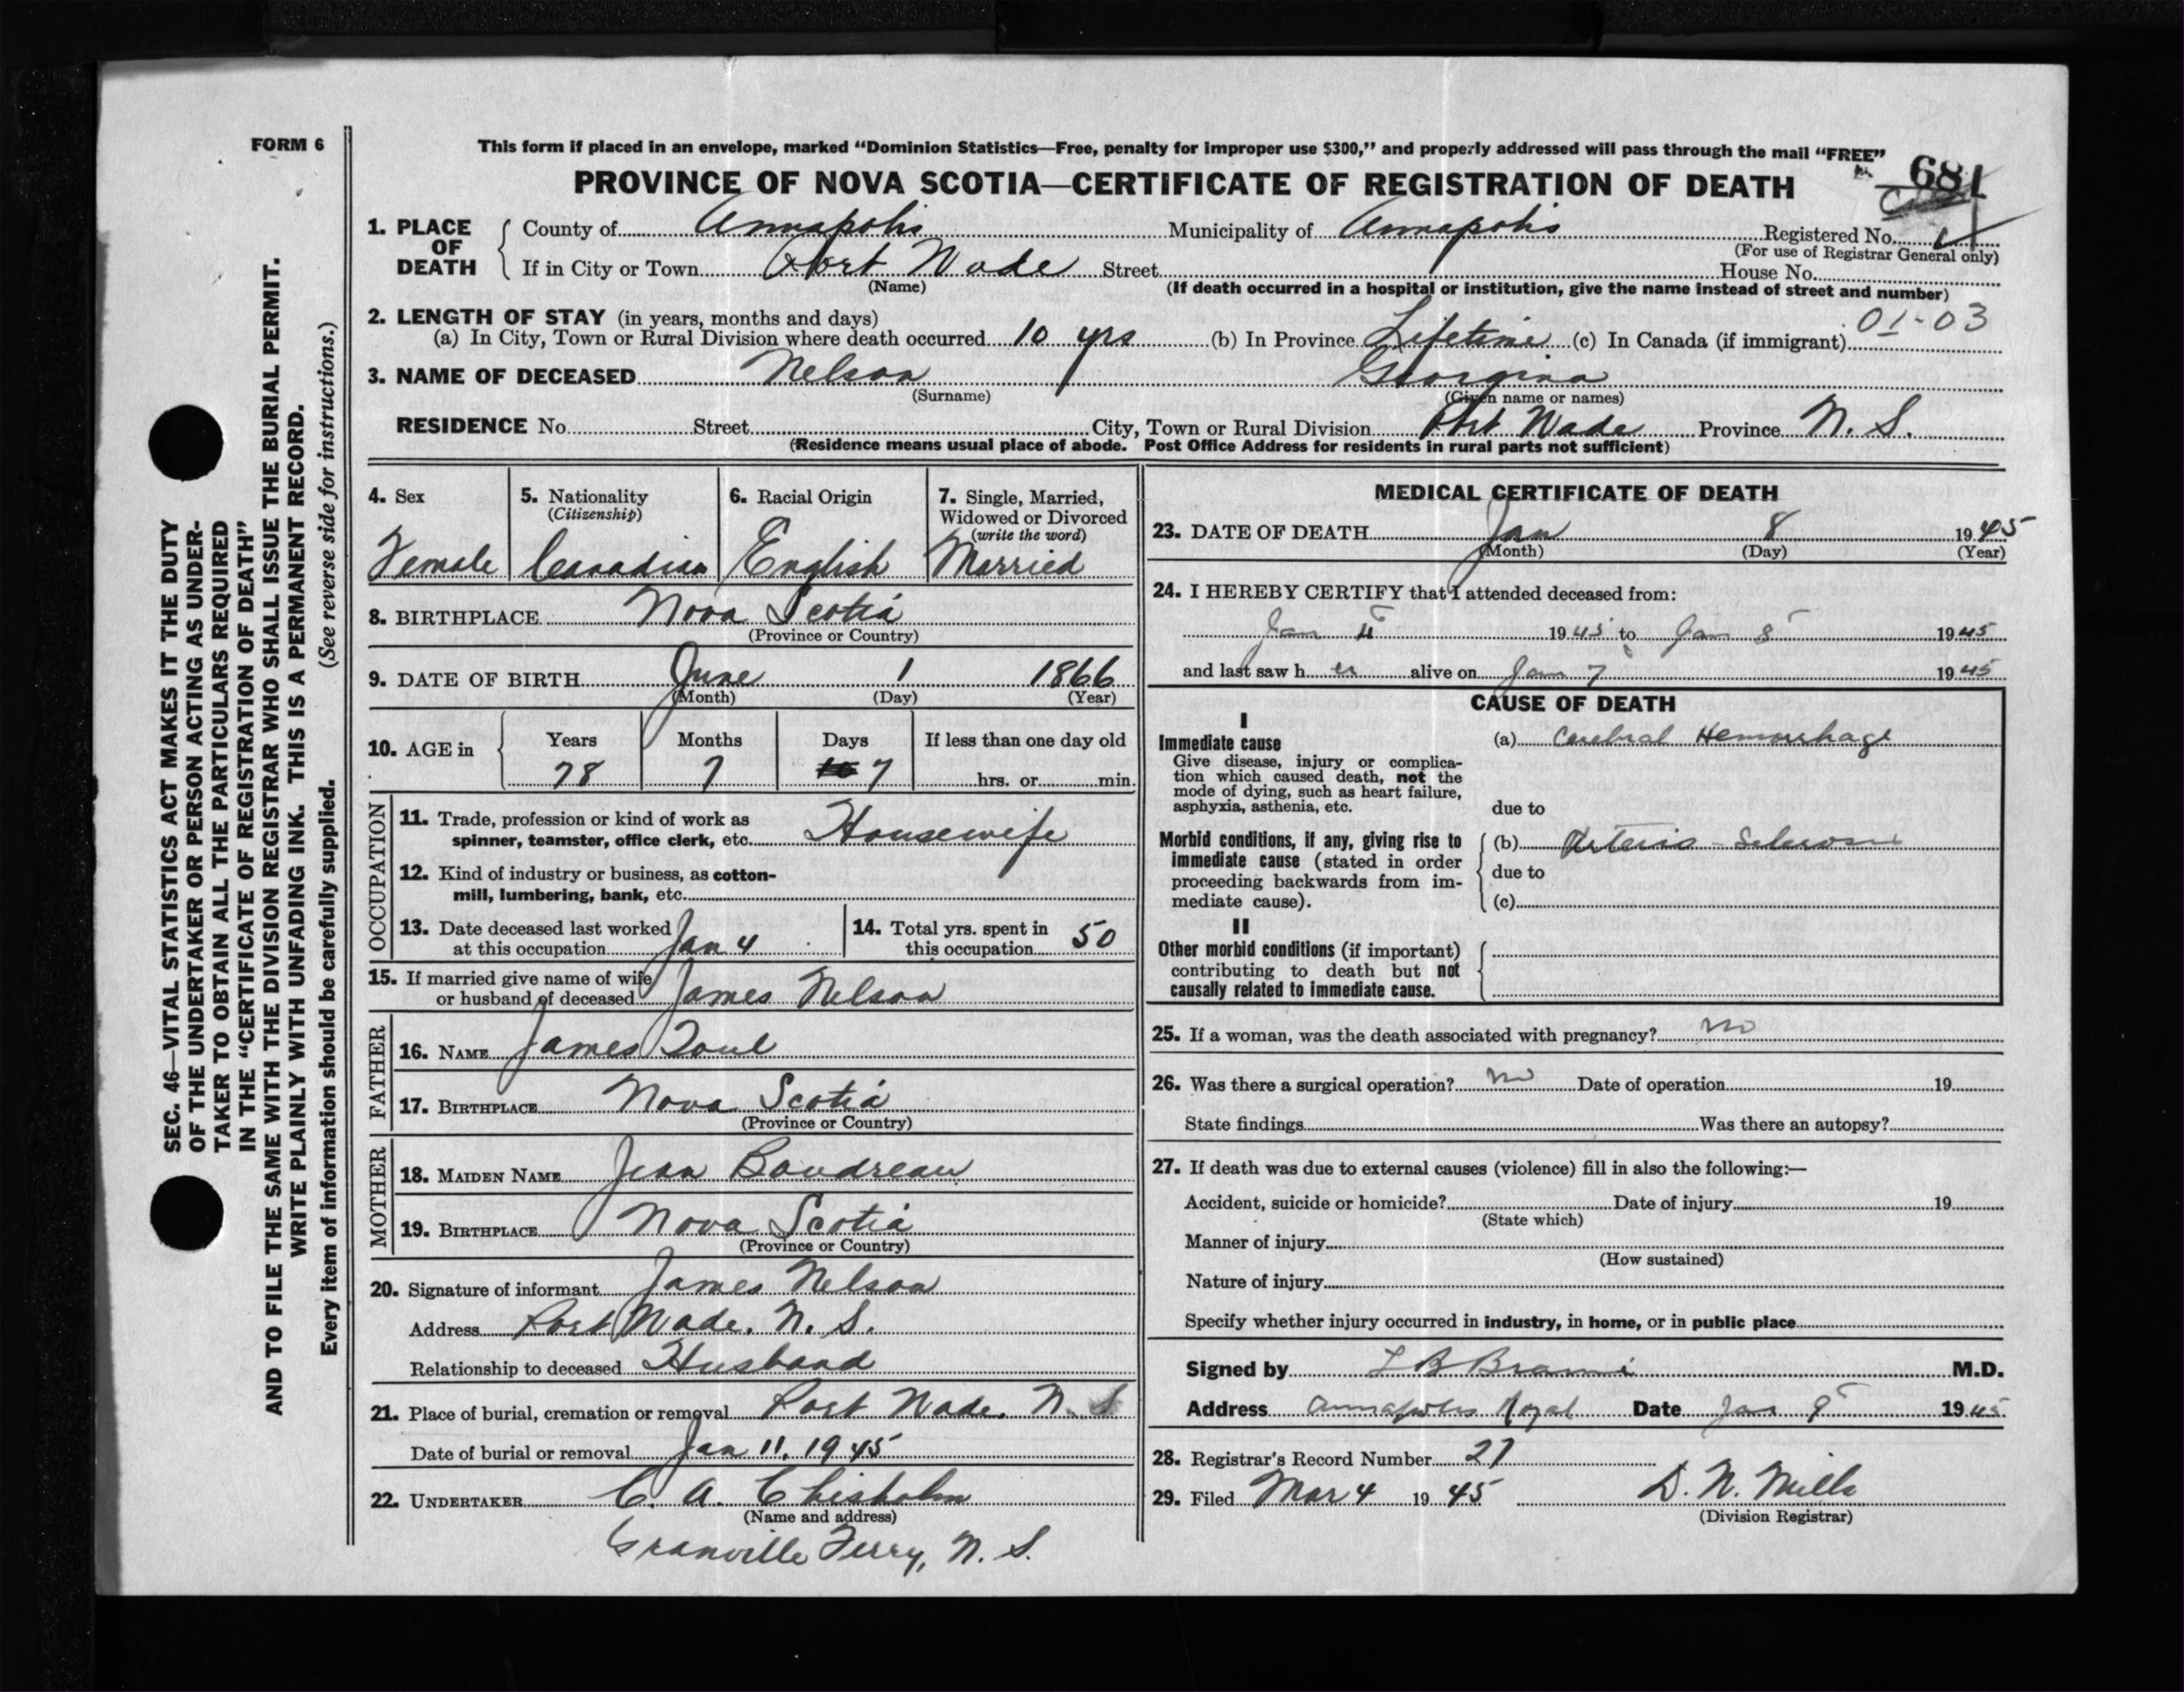 FORM 6
This form if placed in an envelope, marked “Dominion Statistics—Free, penalty for improper use $300,” and properly addressed will pass through the mail “FREE”
PROVINCE OF NOVA SCOTIA—CERTIFICATE OF REGISTRATION OF DEATH
681
1. PLACE OF DEATH
County of Annapolis Municipality of Annapolis Registered No.
(For use of Registrar General only)
If in City or Town Port Wade Street House No.
(Name) (If death occurred in a hospital or institution, give the name instead of street and number)
2. LENGTH OF STAY (in years, months and days) 01-03
(a) In City, Town or Rural Division where death occurred 10 yrs (b) In Province Lifetime (c) In Canada (if immigrant)
3. NAME OF DECEASED Nelson Georgina
(Surname) (Given name or names)
RESIDENCE No. Street City, Town or Rural Division Port Wade Province N. S.
(Residence means usual place of abode. Post Office Address for residents in rural parts not sufficient)
4. Sex Female
5. Nationality (Citizenship) Canadian
6. Racial Origin English
7. Single, Married, Widowed or Divorced (write the word) Married
8. BIRTHPLACE Nova Scotia
(Province or Country)
9. DATE OF BIRTH June 1 1866
(Month) (Day) (Year)
10. AGE in Years Months Days If less than one day old
78 7 7 hrs. or min.
OCCUPATION
11. Trade, profession or kind of work as
spinner, teamster, office clerk, etc. Housewife
12. Kind of industry or business, as cotton-
mill, lumbering, bank, etc.
13. Date deceased last worked
at this occupation Jan 4
14. Total yrs. spent in
this occupation 50
15. If married give name of wife
or husband of deceased James Nelson
FATHER
16. NAME James
17. BIRTHPLACE Nova Scotia
(Province or Country)
MOTHER
18. MAIDEN NAME Jean Boudreau
19. BIRTHPLACE Nova Scotia
(Province or Country)
20. Signature of informant James Nelson
Address Port Wade, N. S.
Relationship to deceased Husband
21. Place of burial, cremation or removal Port Wade, N. S
Date of burial or removal Jan 11, 1945
22. UNDERTAKER C. A. Chisholm
(Name and address)
Granville Ferry, N. S.
MEDICAL CERTIFICATE OF DEATH
23. DATE OF DEATH Jan 8 1945
(Month) (Day) (Year)
24. I HEREBY CERTIFY that I attended deceased from:
Jan 4 1945 to Jan 8 1945
and last saw her alive on Jan 7 1945
CAUSE OF DEATH
I
Immediate cause (a) Cerebral Hemorrhage
Give disease, injury or complica-
tion which caused death, not the
mode of dying, such as heart failure,
asphyxia, asthenia, etc. due to
Morbid conditions, if any, giving rise to (b) Arterio-Sclerosis
immediate cause (stated in order
proceeding backwards from im- due to
mediate cause). (c)
II
Other morbid conditions (if important)
contributing to death but not
causally related to immediate cause.
25. If a woman, was the death associated with pregnancy? no
26. Was there a surgical operation? no Date of operation 19
State findings Was there an autopsy?
27. If death was due to external causes (violence) fill in also the following:—
Accident, suicide or homicide? Date of injury 19
(State which)
Manner of injury
(How sustained)
Nature of injury
Specify whether injury occurred in industry, in home, or in public place
Signed by M.D.
Address Annapolis Royal Date Jan 9 1945
28. Registrar's Record Number 27
29. Filed Mar 4 1945 D. N. Mills
(Division Registrar)
SEC. 46—VITAL STATISTICS ACT MAKES IT THE DUTY
OF THE UNDERTAKER OR PERSON ACTING AS UNDER-
TAKER TO OBTAIN ALL THE PARTICULARS REQUIRED
IN THE “CERTIFICATE OF REGISTRATION OF DEATH”
AND TO FILE THE SAME WITH THE DIVISION REGISTRAR WHO SHALL ISSUE THE BURIAL PERMIT.
WRITE PLAINLY WITH UNFADING INK. THIS IS A PERMANENT RECORD.
Every item of information should be carefully supplied. (See reverse side for instructions.)